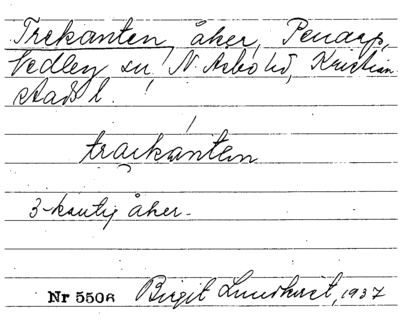 Trekanten, åker, Penarp,
Vedby sn, N. Åsbo hd, Kristian-
stads l.
traikanten
3-kantig åker.
Nr 5506 Birgit Lundkvist, 1937